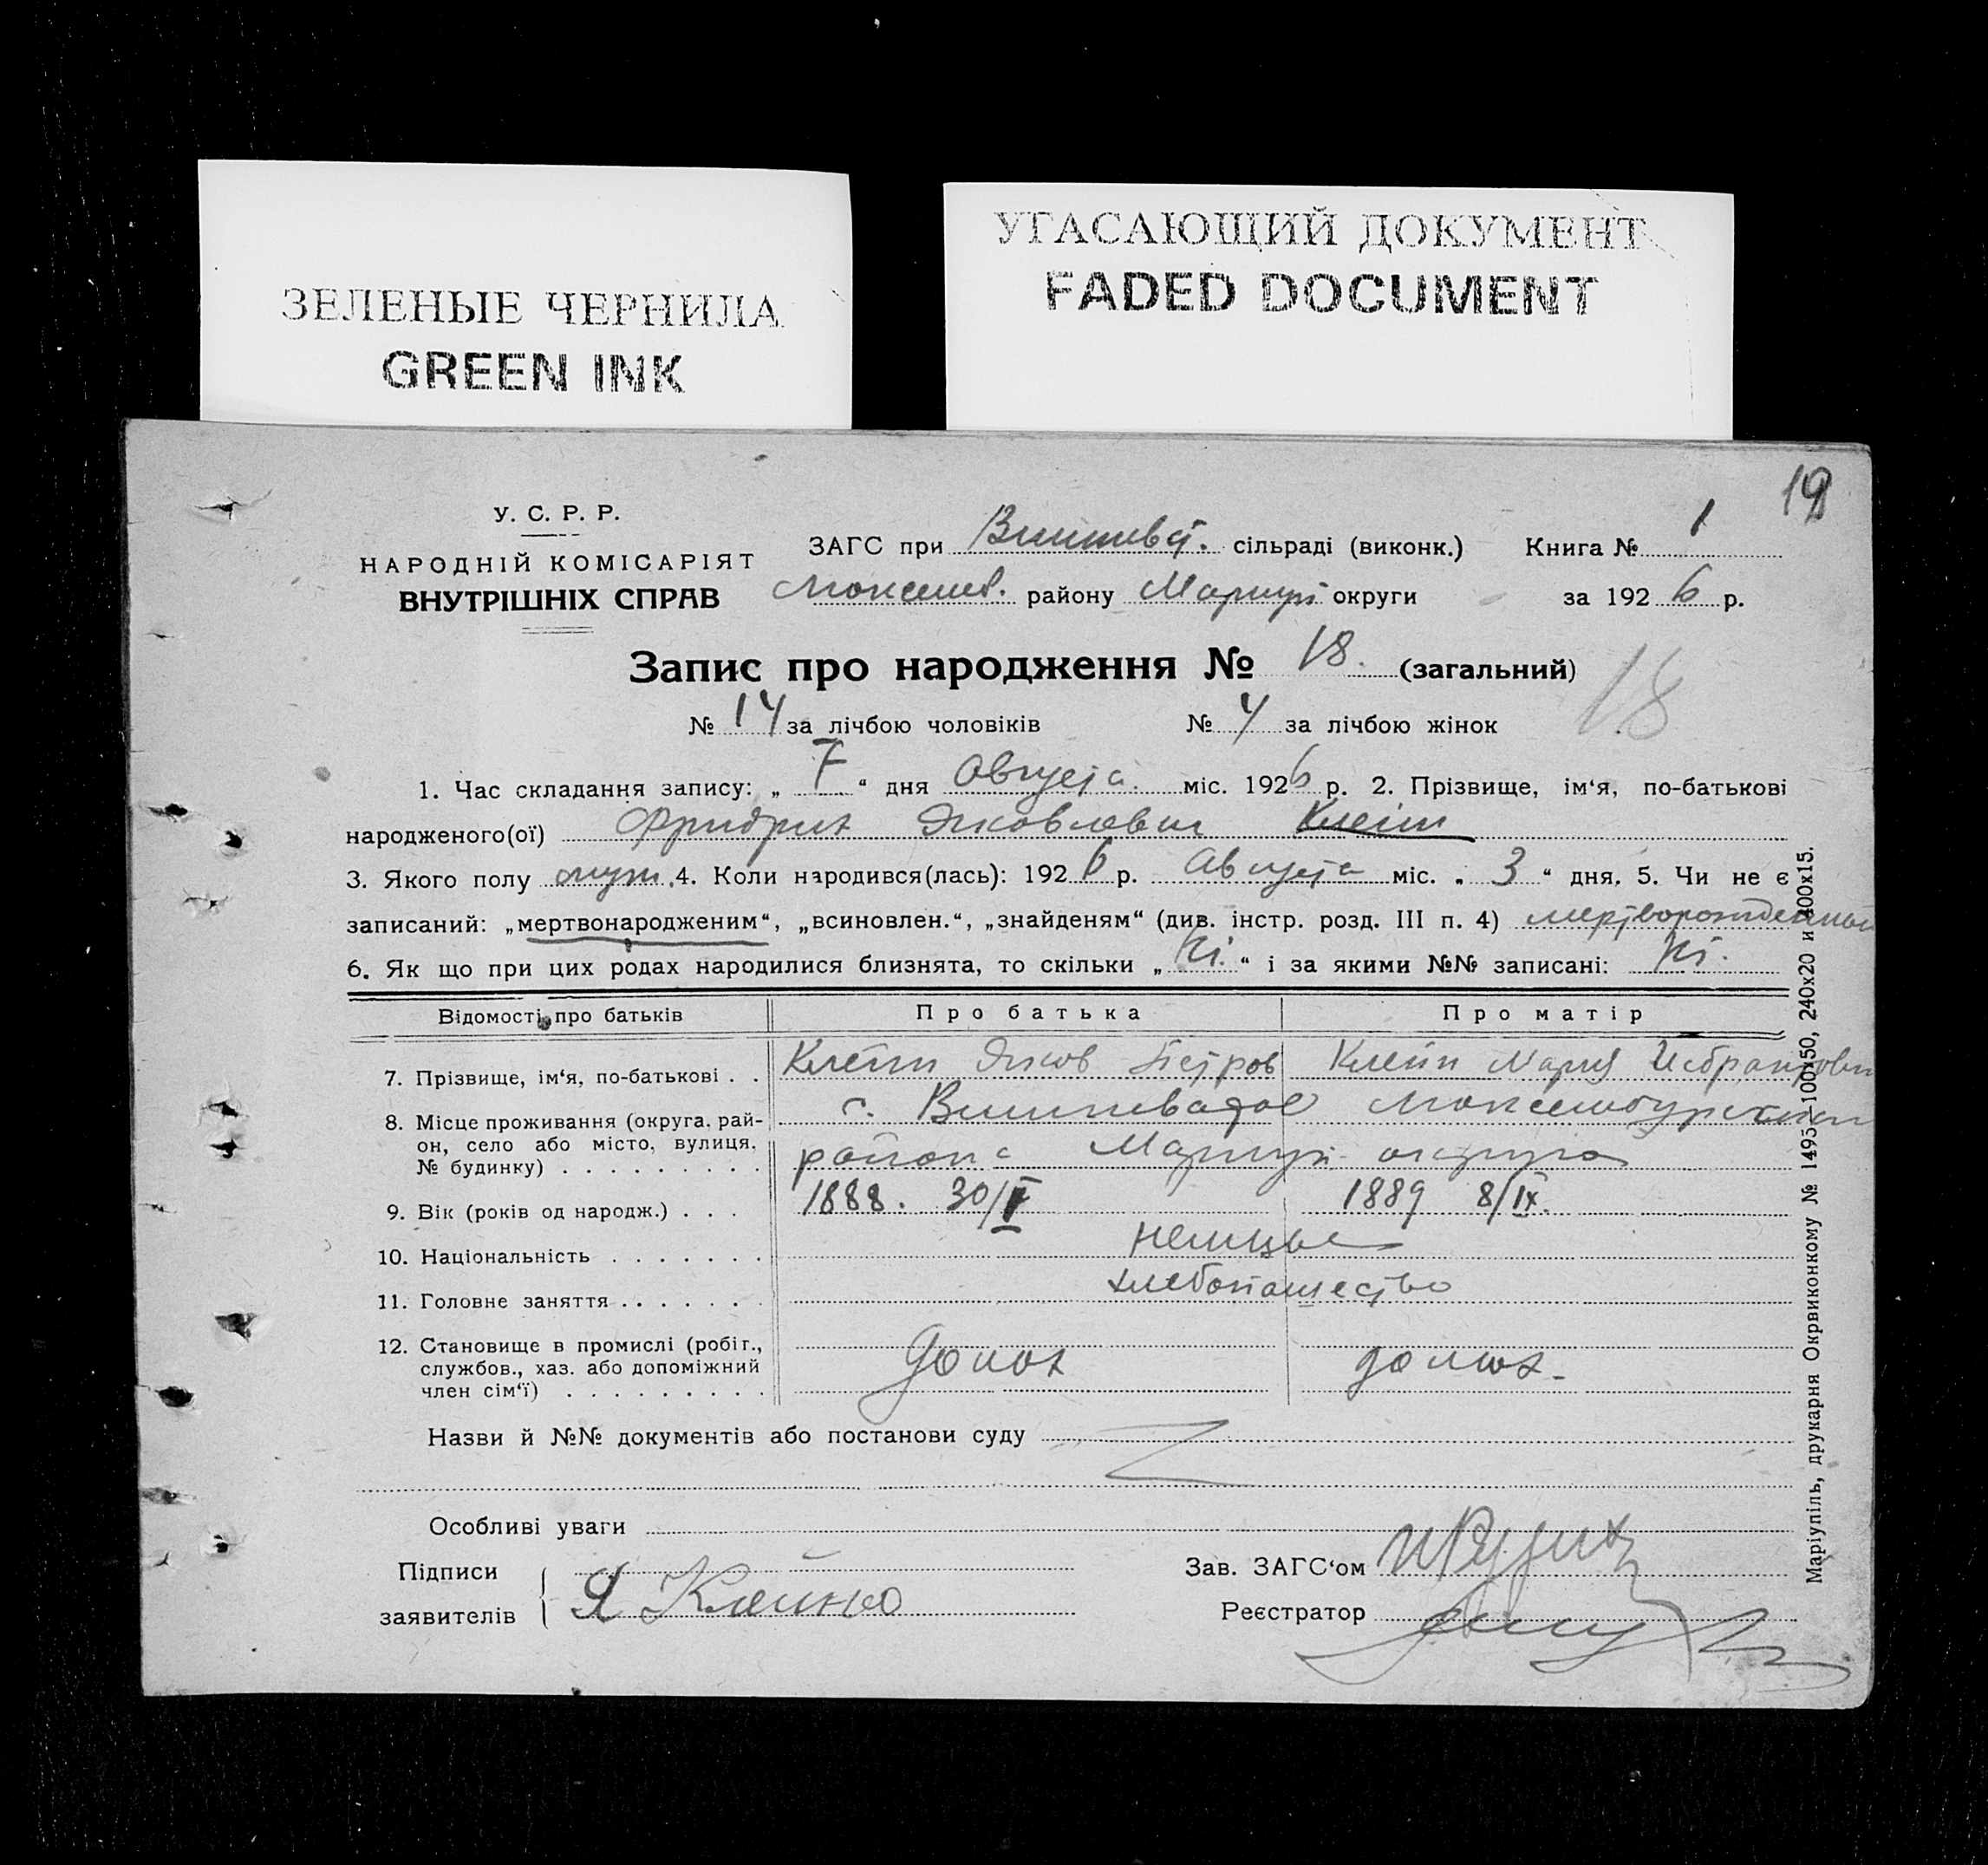 ЗЕЛЕНЫЕ ЧЕРНИЛА
GREEN INK
УГАСАЮЩИЙ ДОКУМЕНТ
FADED DOCUMENT
19
У. С. Р. Р.
НАРОДНІЙ КОМІСАРІЯТ
ВНУТРІШНІХ СПРАВ
ЗАГС при сільраді (виконк.) Книга № 1
району Мариуп округи за 1926 р.
Запис про народження № 18. (загальний) 18
№ 14 за лічбою чоловіків № 4 за лічбою жінок
1. Час складання запису: „ 7 “ дня Августа міс. 1926 р. 2. Прізвище, ім‘я, по-батькові
народженого(ої) Фридрих Яковлевич Клейн
3. Якого полу муж. 4. Коли народився(лась): 1926 р. Августа міс. „ 3 “ дня. 5. Чи не є
записаний: „мертвонародженим“, „всиновлен.“, „знайденям“ (див. інстр. розд. III п. 4) мертворожденный
6. Як що при цих родах народилися близнята, то скільки „ “ і за якими №№ записані:
Відомості про батьків Про батька Про матір
7. Прізвище, ім‘я, по-батькові . . Клейн Яков Петров Клейн Мария
8. Місце проживання (округа, рай-
он, село або місто, вулиця,
№ будинку) . . . . . . . . .
с.
района Мариуп. округа
9. Вік (років од народж.) . . . 1888. 30/V 1889 8/IX.
10. Національність . . . . . . . немцы
11. Головне заняття . . . . . . . хлебопашество
12. Становище в промислі (робіт.,
службов., хаз. або допоміжний
член сім‘ї) . . . . . . . . .
домох домох.
Назви й №№ документів або постанови суду
Особливі уваги
Підписи
заявителів
Я Клейно
Зав. ЗАГС‘ом
Реєстратор
Маріупіль, друкарня Окрвиконкому № 1495—100х50, 240х20 и 400х15.